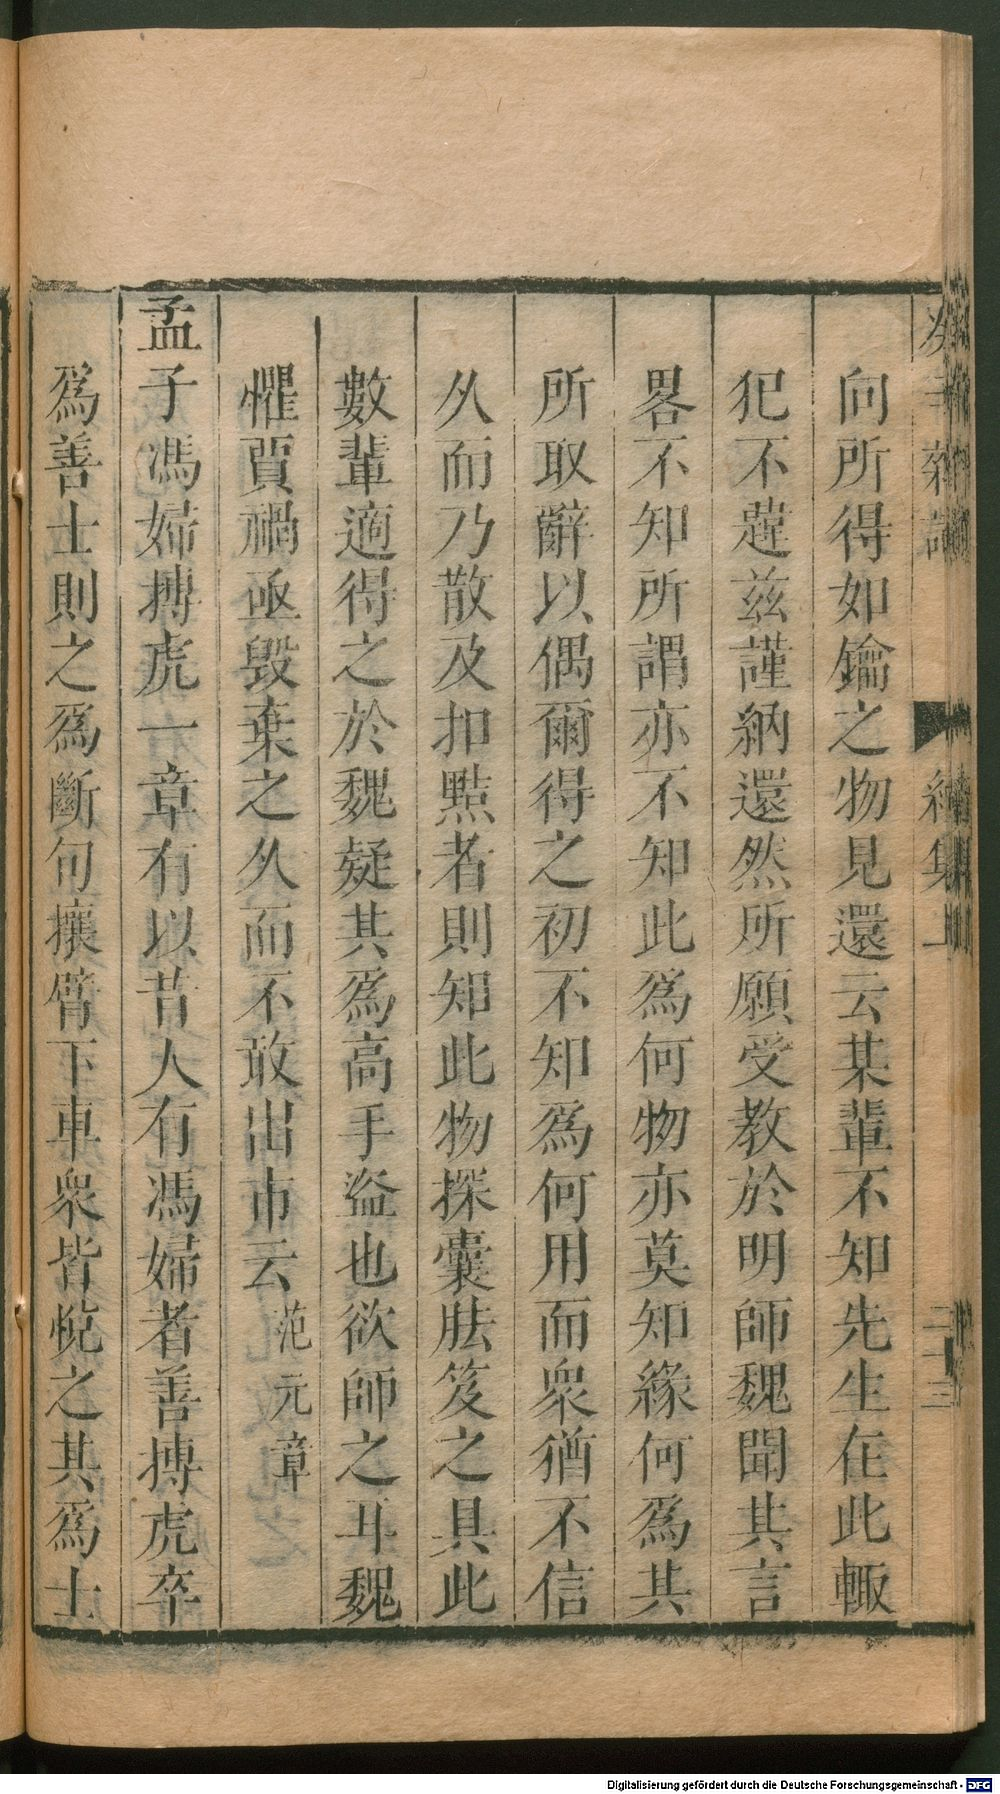 向所得如鑰之物見還云某輩不知先生在此輙
犯不韙茲謹納還然所願受教於明師魏聞其言
畧不知所謂亦不知此爲何物亦莫知緣何爲其
所取辭以偶爾得之初不知爲何用而衆猶不信
久而乃散及扣黠者則知此物探囊胠笈之具此
數輩適得之於魏疑其爲高手盜也欲師之耳魏
懼賈禍亟毁棄之久而不敢出市云范元章
孟子馮婦搏虎一章有以昔人有馮婦者善搏虎卒
爲善士則之爲斷句攘臂下車衆皆悅之其爲士
Digitalisierung gefördert durch die Deutsche Forschungsgemeinschaft - DFG